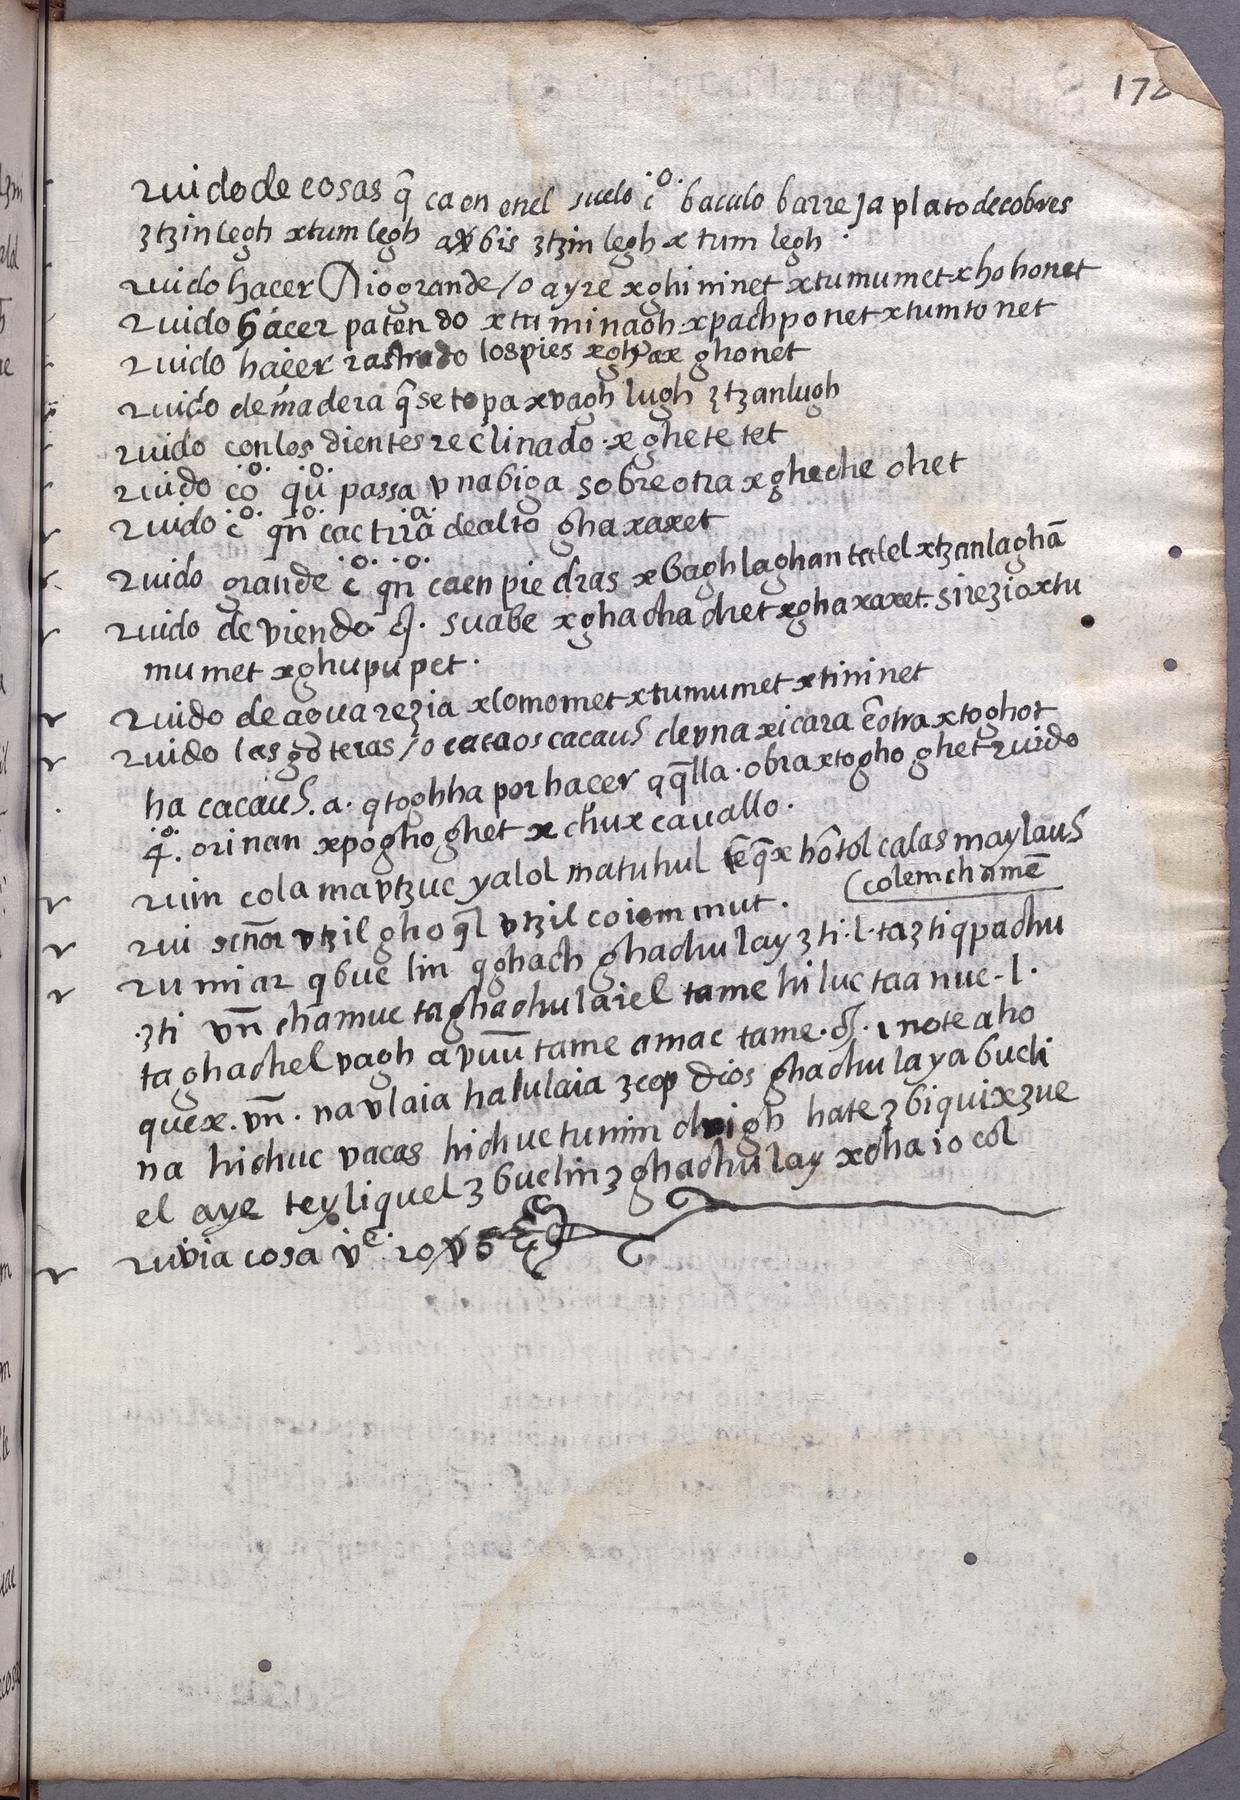 172
ruido de cosas q̃ caen enel suelo c̊ baculo barreja plato decobres
ʒtʒinlegh xtumlegh axbis ʒtʒin legh xtum legh
ruido hacer Rio grande / o ayre xghininet xtumumet xhohonet
ruido hacer patendo xtuminagh xpachponet xtumtonet
ruido hacer rastrado lospies xghax ghonet
ruido de madera q̃ se topa xvagh lugh ʒtʒanlugh
ruido conlos dientes reclinado xghetetet
ruido co. qu. passa vna biga sobre otra xgheche chet
ruido c̊ qn̊ cae tira de alto ghaxaxet
ruido grande c̊ qn̊ caen piedras xbaghlaghan tatel xtʒanlaghã
ruido de viendo suabe xghacha chet xghaxaxet. si reʒio xtu
mumet xghupupet
ruido de agua reʒia xlomomet xtumumet xtininet
ruido las goteras / o cacaos cacaus de vna xicara ẽ otra xtoghot
ha cacaus. a. qtoghha por hacer qq̃lla. obra xtogho ghet ruido
q̊. orinan xpogho ghet x chux cauallo.
ruin cola mavtʒuc yalol matuhul hõtol calas maylaus
(colemchamẽ
rui señor vtʒil gho q̃l vtʒil coiom mut.
rumiar qbue lin qghach ghachulay ʒti.l.taʒtiqpachu
.ʒti vñ chamuc taghachulaiel tame hiluc taa nue-l.
taghachel vagh a vuũ tame amac tame. . i note aho
quex. vñ. na vlaia halulaia ʒcop Dios ghachulaya bueli
na hichuc vacas hichuc tumin chigh hateʒ biquixʒue
el aye teyliquel ʒ buelin ʒ ghachulay xchaiocol
ruvia cosa v͏ͤ. roxo